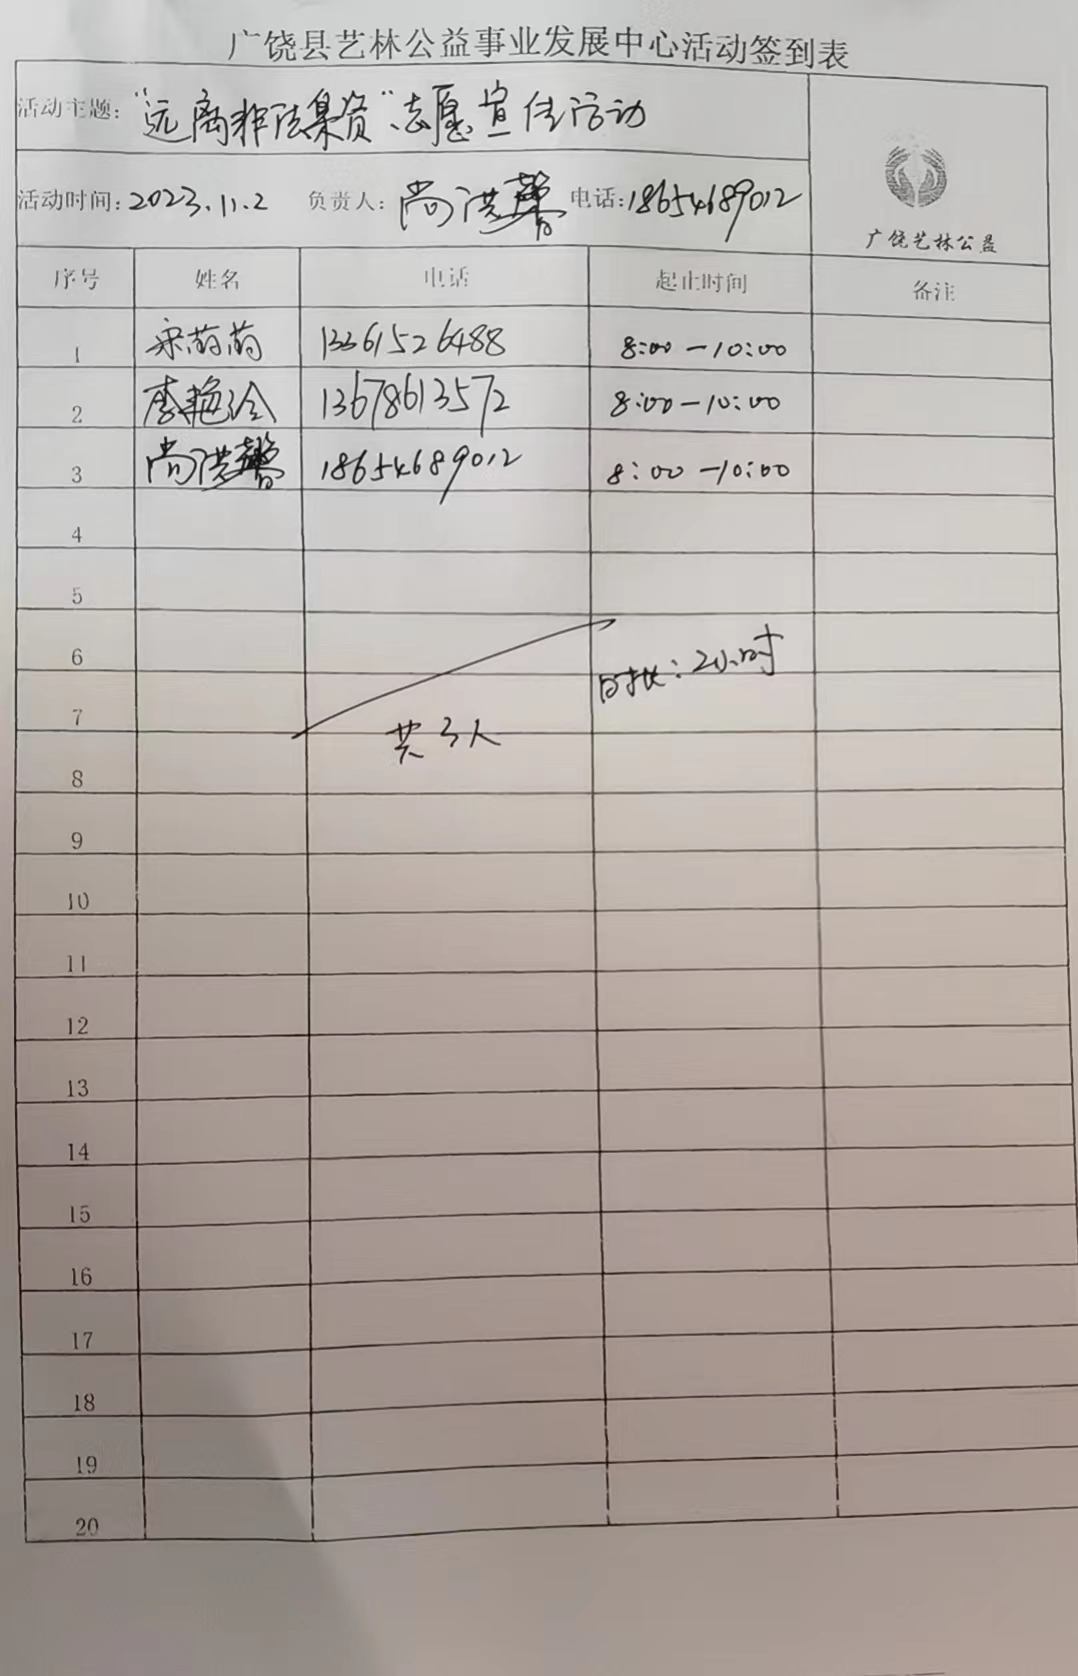 广饶县艺林公益事业发展中心活动签到表
活动主题：“远离非法集资”志愿宣传活动
活动时间：2023.11.2 负责人：尚洪馨 电话：18654689012
广饶艺林公益
序号 姓名 电话 起止时间 备注
1 宋蒴蒴 13361526488 8:00-10:00
2 李艳冷 13678613572 8:00-10:00
3 尚洪馨 18654689012 8:00-10:00
4
5
6
时长：2小时
7
共3人
8
9
10
11
12
13
14
15
16
17
18
19
20